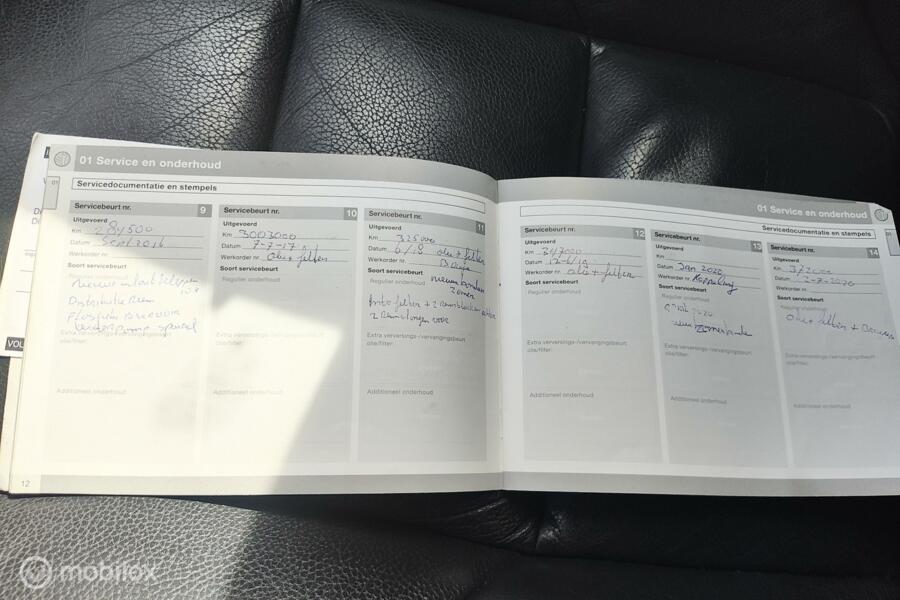 01 Service en onderhoud
01
Servicedocumentatie en stempels
Servicebeurt nr. 9
Uitgevoerd
Km 284500
Datum Sept 2016
Werkorder nr.
Soort servicebeurt
Regulier onderhoud
nieuwe
Distributie Riem
Extra verversings-/vervangingsbeurt
olie/filter:
Additioneel onderhoud
Servicebeurt nr. 10
Uitgevoerd
Km 3003000
Datum 7-7-17
Werkorder nr. olie + filter
Soort servicebeurt
Regulier onderhoud
Extra verversings-/vervangingsbeurt
olie/filter:
Additioneel onderhoud
Servicebeurt nr. 11
Uitgevoerd
Km 325000
Datum 6/18 olie + filter
Werkorder nr.
Soort servicebeurt
Regulier onderhoud nieuwe banden
zomer
2 Remslangen voor
Extra verversings-/vervangingsbeurt
olie/filter:
Additioneel onderhoud
12
01 Service en onderhoud
01
Servicedocumentatie en stempels
Servicebeurt nr. 12
Uitgevoerd
Km 347000
Datum 12-6/19
Werkorder nr. olie + filter
Soort servicebeurt
Regulier onderhoud
Extra verversings-/vervangingsbeurt
olie/filter:
Additioneel onderhoud
Servicebeurt nr. 13
Uitgevoerd
Km
Datum Jan 2020
Werkorder nr. Koppeling
Soort servicebeurt
Regulier onderhoud
2020
zomerbanden
Extra verversings-/vervangingsbeurt
olie/filter:
Additioneel onderhoud
Servicebeurt nr. 14
Uitgevoerd
Km
Datum 2-7-2020
Werkorder nr.
Soort servicebeurt
Regulier onderhoud
olie + filter +
Extra verversings-/vervangingsbeurt
olie/filter:
Additioneel onderhoud
VOL
mobilox